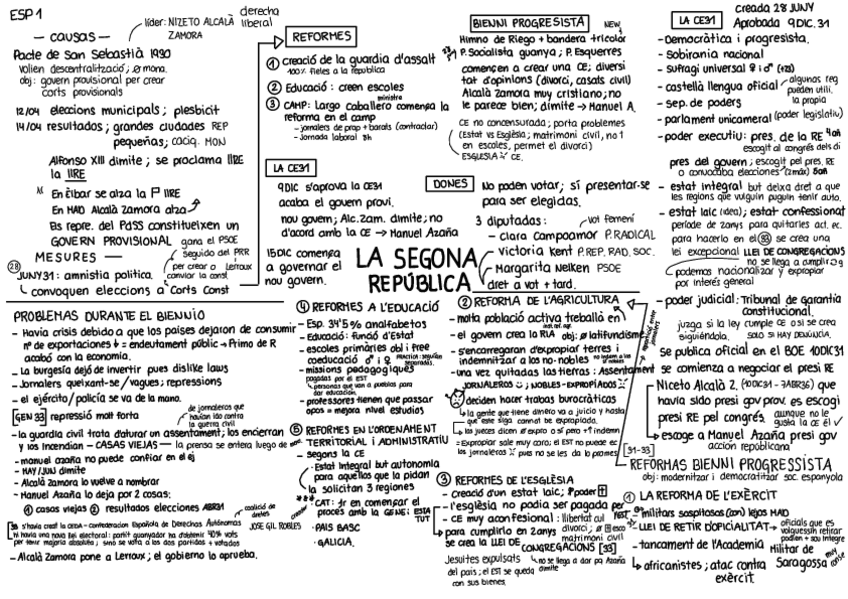 ESP 1
líder: NIZETO ALCALÀ ZAMORA
derecha
liberal
— CAUSAS —
Pacte de San Sebastià 1930
volien descentralització; Ø mona.
obj: govern provisional per crear
corts provisionals
12/04 eleccions municipals; plesbicit
14/04 resultados; grandes ciudades REP
pequeñas; caciq. MON
Alfonso XIII dimite; se proclama IIRE
la IIRE
En Eibar se alza la IIRE
En MAD Alcalà Zamora alza
Es repre. del PdSS constitueixen un
GOVERN PROVISIONAL
gana el PSOE
seguido del PRR
per crear o Lerroux
canviar la const
MESURES —
28
JUNY31: amnistia politica.
convoquen eleccions a Corts Const
REFORMES
① creación de la guardia d'assalt
100% fieles a la república
② Educació: creen escoles
ministre
③ CAMP: Largo Caballero comença la
reforma en el camp
- jornalers de prop + barats (contractar)
- Jornada laboral 8h
LA CE31
9DIC s'aprova la CE31
acaba el govern provi.
nou govern; Alc.Zam. dimite; no
d'acord amb la CE → Manuel Azaña
15DIC comença
a governar el
nou govern.
LA SEGONA
REPÚBLICA
BIENNI PROGRESSISTA
NEW
Himno de Riego + bandera tricolor
P. Socialista guanya; P. Esquerres
començen a crear una CE; diversi
tat d'opinions (divorci, casals civil)
Alcalà Zamora muy cristiano; no
le parece bien; dimite → Manuel A.
CE no concensurada; porta problemes
(Estat vs Església; matrimoni civil, no 1
en escoles, permet el divorci)
ESGLESIA CE.
DONES
No poden votar; sí presentar-se
para ser elegidas.
3 diputadas:
vot femení
- clara Campoamor P.RADICAL
- victoria Kent P.REP. RAD. SOC.
- Margarita Nelken PSOE
dret a vot + tard.
LA CE31
creada 28 JUNY
Aprobada 9 DIC.31
- Democràtica i progresista.
- Sobirania nacional
- sufragi universal ♀ i ♂ (+23)
- castellà llengua oficial
algunas reg
pueden utili.
la propia
- sep. de poders
- parlament unicameral (poder legislatiu)
- poder executiu: pres. de la RE
escogit al congrés dels di
pres del govern; escogit pel pres. RE
o convocaba elecciones (2 máx)
- estat integral but deixa dret a que
les regions que vulguin puguin tenir auto.
- estat laic (idea); estat confessional
període de 2anys para quitarles act. ec.
para hacerlo en el 33 se crea una
lei excepcional LLEI DE CONGREGACIONS
no se llega a cumplir
podemos nacionalizar y expropiar
por interés general
- poder judicial: Tribunal de garantia
Constitucional.
juzga si la ley cumple CE o si se crea
siguiéndola.
SOLO SI HAY DENÚNCIA.
se publica oficial en el BOE 10DIC31
se comienza a negociar el presi RE
Niceto Alcalà Z. (10DIC31 - 7ABR36) que
havia sido presi gov prov. es escogi
presi RE pel congrés.
aunque no le
gusta la CE
escoge a Manuel Azaña presi gov
acción republicana
[31-33]
REFORMAS BIENNI PROGRESSISTA
obj: modernitzar i democratitzar soc. espanyola
① LA REFORMA DE L'EXÈRCIT
- militars sospitosos (con) lejos MAD
- LLEI DE RETIR D'OFICIALITAT →
oficials que es
volguessin retirar
podien + sou íntegre
- tancament de l'Academia Militar de
Saragossa
- africanistes; atac contra
exèrcit
PROBLEMAS DURANTE EL BIENNIO
- Havia crisis debido a que los países dejaron de consumir
nº de exportaciones ↓ = endeutament públic → Primo de R
acabó con la economia.
- La burgesia dejó de invertir pues dislike laws
- Jornalers queixant-se / vagues; repressions
- el ejército/policía se va de la mano.
[GEN 33] repressió molt forta
de jornaleros que
havían ido contra
la guerra civil
- la guardia civil trata d'aturar un assentament; los encierran
y los Incendian — CASAS VIEJAS — la prensa se entera luego de
- manuel azaña no puede confiar en el ej
- MAY/JUN dimite
- Alcalà Zamora lo vuelve a nombrar
- Manuel Azaña lo deja por 2 cosas:
① casas viejas ② resultados elecciones ABR31
coalició de
dretes
JOSE GIL ROBLES
33 s'havia creat la CEDA - Confederacion Española de Derechas Autónomas
hi havia una nova llei electoral: partit guanyador ha d'obtenir 40% vots
per tener majoria absoluta; sino se vota a los dos partidos + votados
- Alcalà Zamora pone a Lerroux; el gobierno lo aprueba.
④ REFORMES A L'EDUCACIÓ
- Esp. 34'5% analfabetos
- Educació: funció d'Estat
- escoles primàries obl i free
coeducació ♂ i ♀
- missions pedagògiques
pagadas por el EST
personas que van a pueblos para
dar educación.
- professores tienen que passar
opos = mejora nivel estudios
⑤ REFORMES EN L'ORDENAMENT
TERRITORIAL I ADMINISTRATIU
- segons la CE
- Estat Integral but autonomia
para aquellos que la pidan
la solicitan 3 regiones
- CAT: 1r en començar el
procés amb la GENE; ESTA
TUT
- PAIS BASC
- GALICIA.
② REFORMA DE L'AGRICULTURA
- molta població activa treballà en
- el govern crea la RIA obj: Ø latifundisme
- s'encarregaran d'expropiar terres i
indemnitzar a los no-nobles
- una vez quitadas las tierras: Assentament
JORNALEROS; NOBLES-EXPROPIADOS
deciden hacer trabas burocràticas
la gente que tiene dinero va a juicio y hasta
que este siga cannot be expropiada.
los jueces dicen Ø expro o sí pero +↑ indemn
= Expropiar sale muy caro; el EST no puede ec
los jornaleros pues no les da lo promes
③ REFORMES DE L'ESGLÈSIA
- Creación d'un estat laic; ↑poder
- l'esglèsia no podia ser pagada per EST
- CE muy aconfesional: llibertat cul
divorci; Ø esco
matrimoni civil
- para cumplirlo en 2anys
se crea la LLEI DE
CONGREGACIONS [33]
Jesuites expulsats
del pais; el EST se queda
con sus bienes.
no se llega a dar pq Azaña
dimite